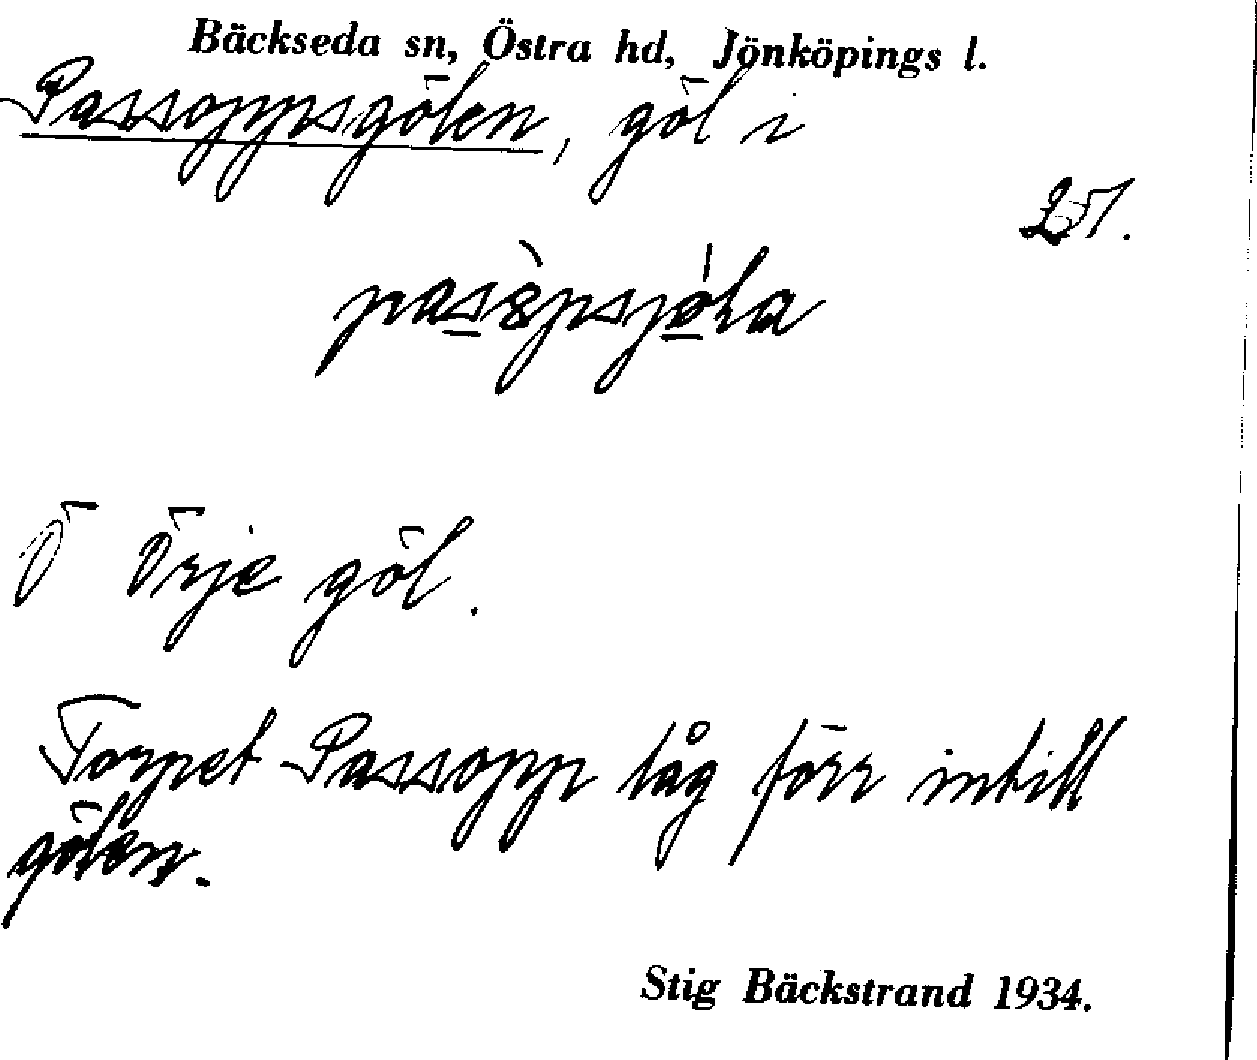 Bäckseda sn, Östra hd, Jönköpings l.
Passoppsgölen, göl i
pasòpsjöla
Ö Örje göl.
Torpet Passopp låg förr intill
gölen.
Stig Bäckstrand 1934.